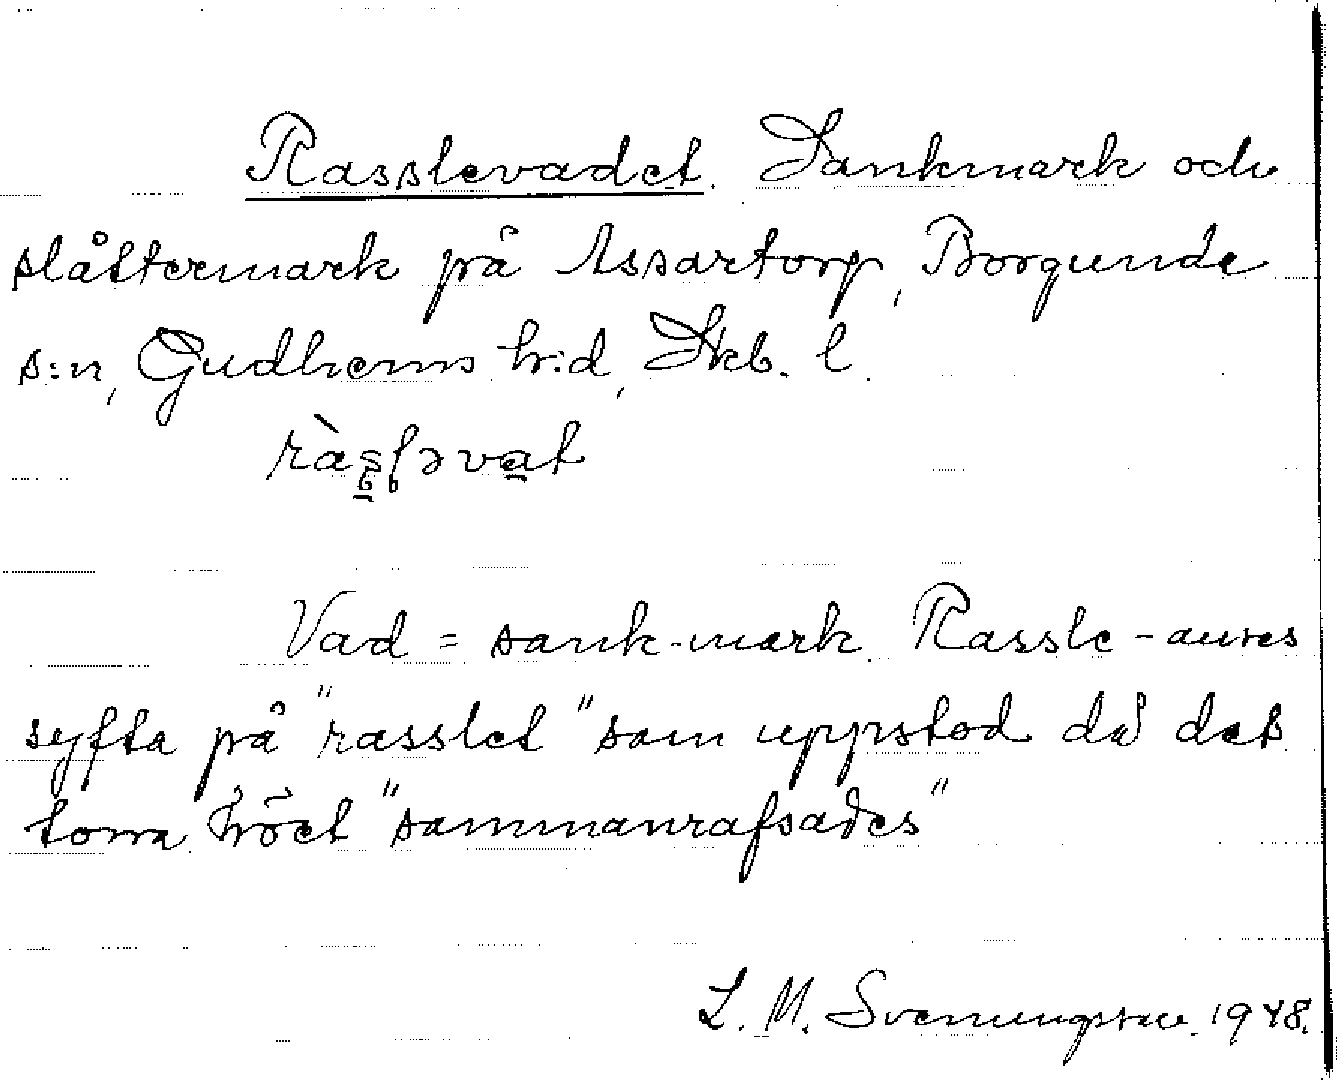 Rasslevadet. Sankmark och
slåttermark på Assartorp, Borgunda
s:n, Gudhems h:d, Skb. l.
ràsləvat
Vad = sank-mark. Rassle - anses
syfta på "rasslet" som uppstod då det
torra höet "sammanrafsades"
L. M. Svenungsson. 1948.